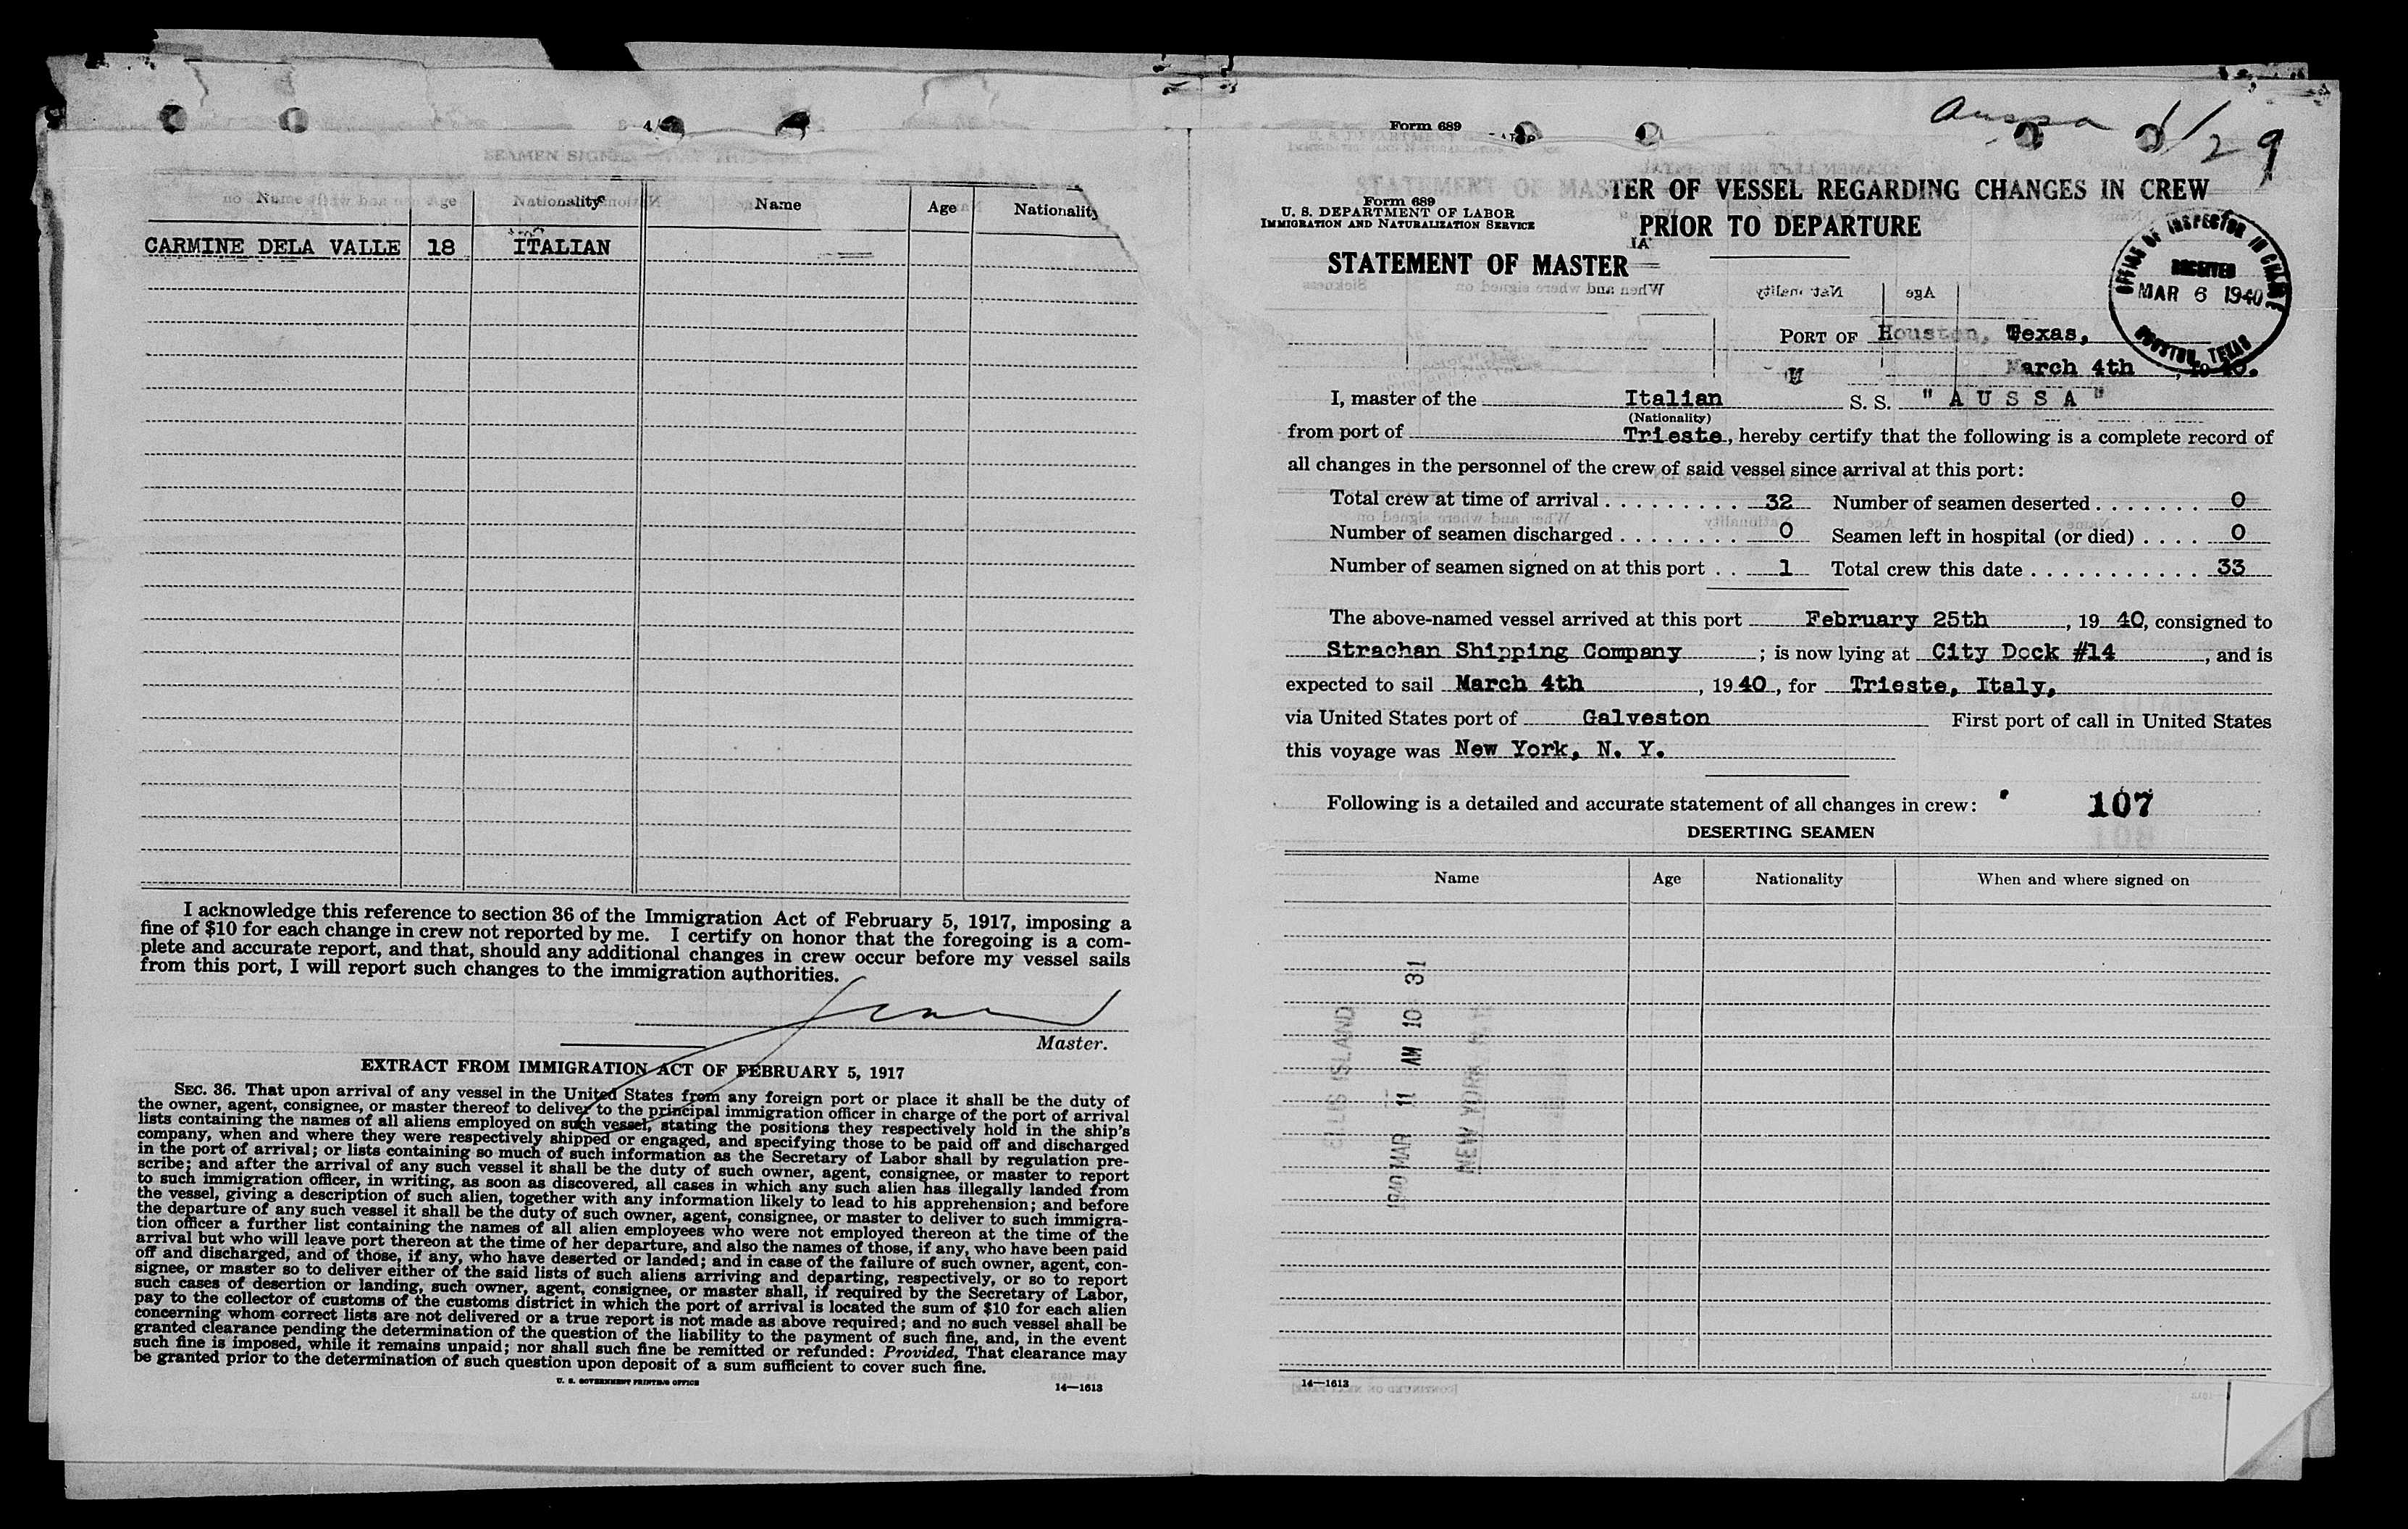 SEAMEN SIGNED
Name Age Nationality Name Age Nationality
CARMINE DELA VALLE 18 ITALIAN
I acknowledge this reference to section 36 of the Immigration Act of February 5, 1917, imposing a
fine of $10 for each change in crew not reported by me. I certify on honor that the foregoing is a com-
plete and accurate report, and that, should any additional changes in crew occur before my vessel sails
from this port, I will report such changes to the immigration authorities.
Master.
EXTRACT FROM IMMIGRATION ACT OF FEBRUARY 5, 1917
SEC. 36. That upon arrival of any vessel in the United States from any foreign port or place it shall be the duty of
the owner, agent, consignee, or master thereof to deliver to the principal immigration officer in charge of the port of arrival
lists containing the names of all aliens employed on such vessel, stating the positions they respectively hold in the ship's
company, when and where they were respectively shipped or engaged, and specifying those to be paid off and discharged
in the port of arrival; or lists containing so much of such information as the Secretary of Labor shall by regulation pre-
scribe; and after the arrival of any such vessel it shall be the duty of such owner, agent, consignee, or master to report
to such immigration officer, in writing, as soon as discovered, all cases in which any such alien has illegally landed from
the vessel, giving a description of such alien, together with any information likely to lead to his apprehension; and before
the departure of any such vessel it shall be the duty of such owner, agent, consignee, or master to deliver to such immigra-
tion officer a further list containing the names of all alien employees who were not employed thereon at the time of the
arrival but who will leave port thereon at the time of her departure, and also the names of those, if any, who have been paid
off and discharged, and of those, if any, who have deserted or landed; and in case of the failure of such owner, agent, con-
signee, or master so to deliver either of the said lists of such aliens arriving and departing, respectively, or so to report
such cases of desertion or landing, such owner, agent, consignee, or master shall, if required by the Secretary of Labor,
pay to the collector of customs of the customs district in which the port of arrival is located the sum of $10 for each alien
concerning whom correct lists are not delivered or a true report is not made as above required; and no such vessel shall be
granted clearance pending the determination of the question of the liability to the payment of such fine, and, in the event
such fine is imposed, while it remains unpaid; nor shall such fine be remitted or refunded: Provided, That clearance may
be granted prior to the determination of such question upon deposit of a sum sufficient to cover such fine.
U. S. GOVERNMENT PRINTING OFFICE
14—1613
Aussa 1/29
Form 689
STATEMENT OF MASTER OF VESSEL REGARDING CHANGES IN CREW
Form 689
U. S. DEPARTMENT OF LABOR
IMMIGRATION AND NATURALIZATION SERVICE
PRIOR TO DEPARTURE
STATEMENT OF MASTER
OFFICE OF INSPECTOR IN CHARGE
RECEIVED
MAR 6 1940
HOUSTON, TEXAS
PORT OF Houston, Texas,
March 4th, 1940.
I, master of the Italian S. S. "AUSSA"
(Nationality)
from port of Trieste, hereby certify that the following is a complete record of
all changes in the personnel of the crew of said vessel since arrival at this port:
Total crew at time of arrival . . . . . . . . . 32 Number of seamen deserted . . . . . . . 0
Number of seamen discharged . . . . . . . . 0 Seamen left in hospital (or died) . . . . 0
Number of seamen signed on at this port . . 1 Total crew this date . . . . . . . . . . . . 33
The above-named vessel arrived at this port February 25th, 1940, consigned to
Strachan Shipping Company; is now lying at City Dock #14, and is
expected to sail March 4th, 1940, for Trieste, Italy,
via United States port of Galveston First port of call in United States
this voyage was New York, N. Y.
Following is a detailed and accurate statement of all changes in crew: 107
DESERTING SEAMEN
Name Age Nationality When and where signed on
ELLIS ISLAND
1940 MAR 11 AM 10 31
NEW YORK
14—1613